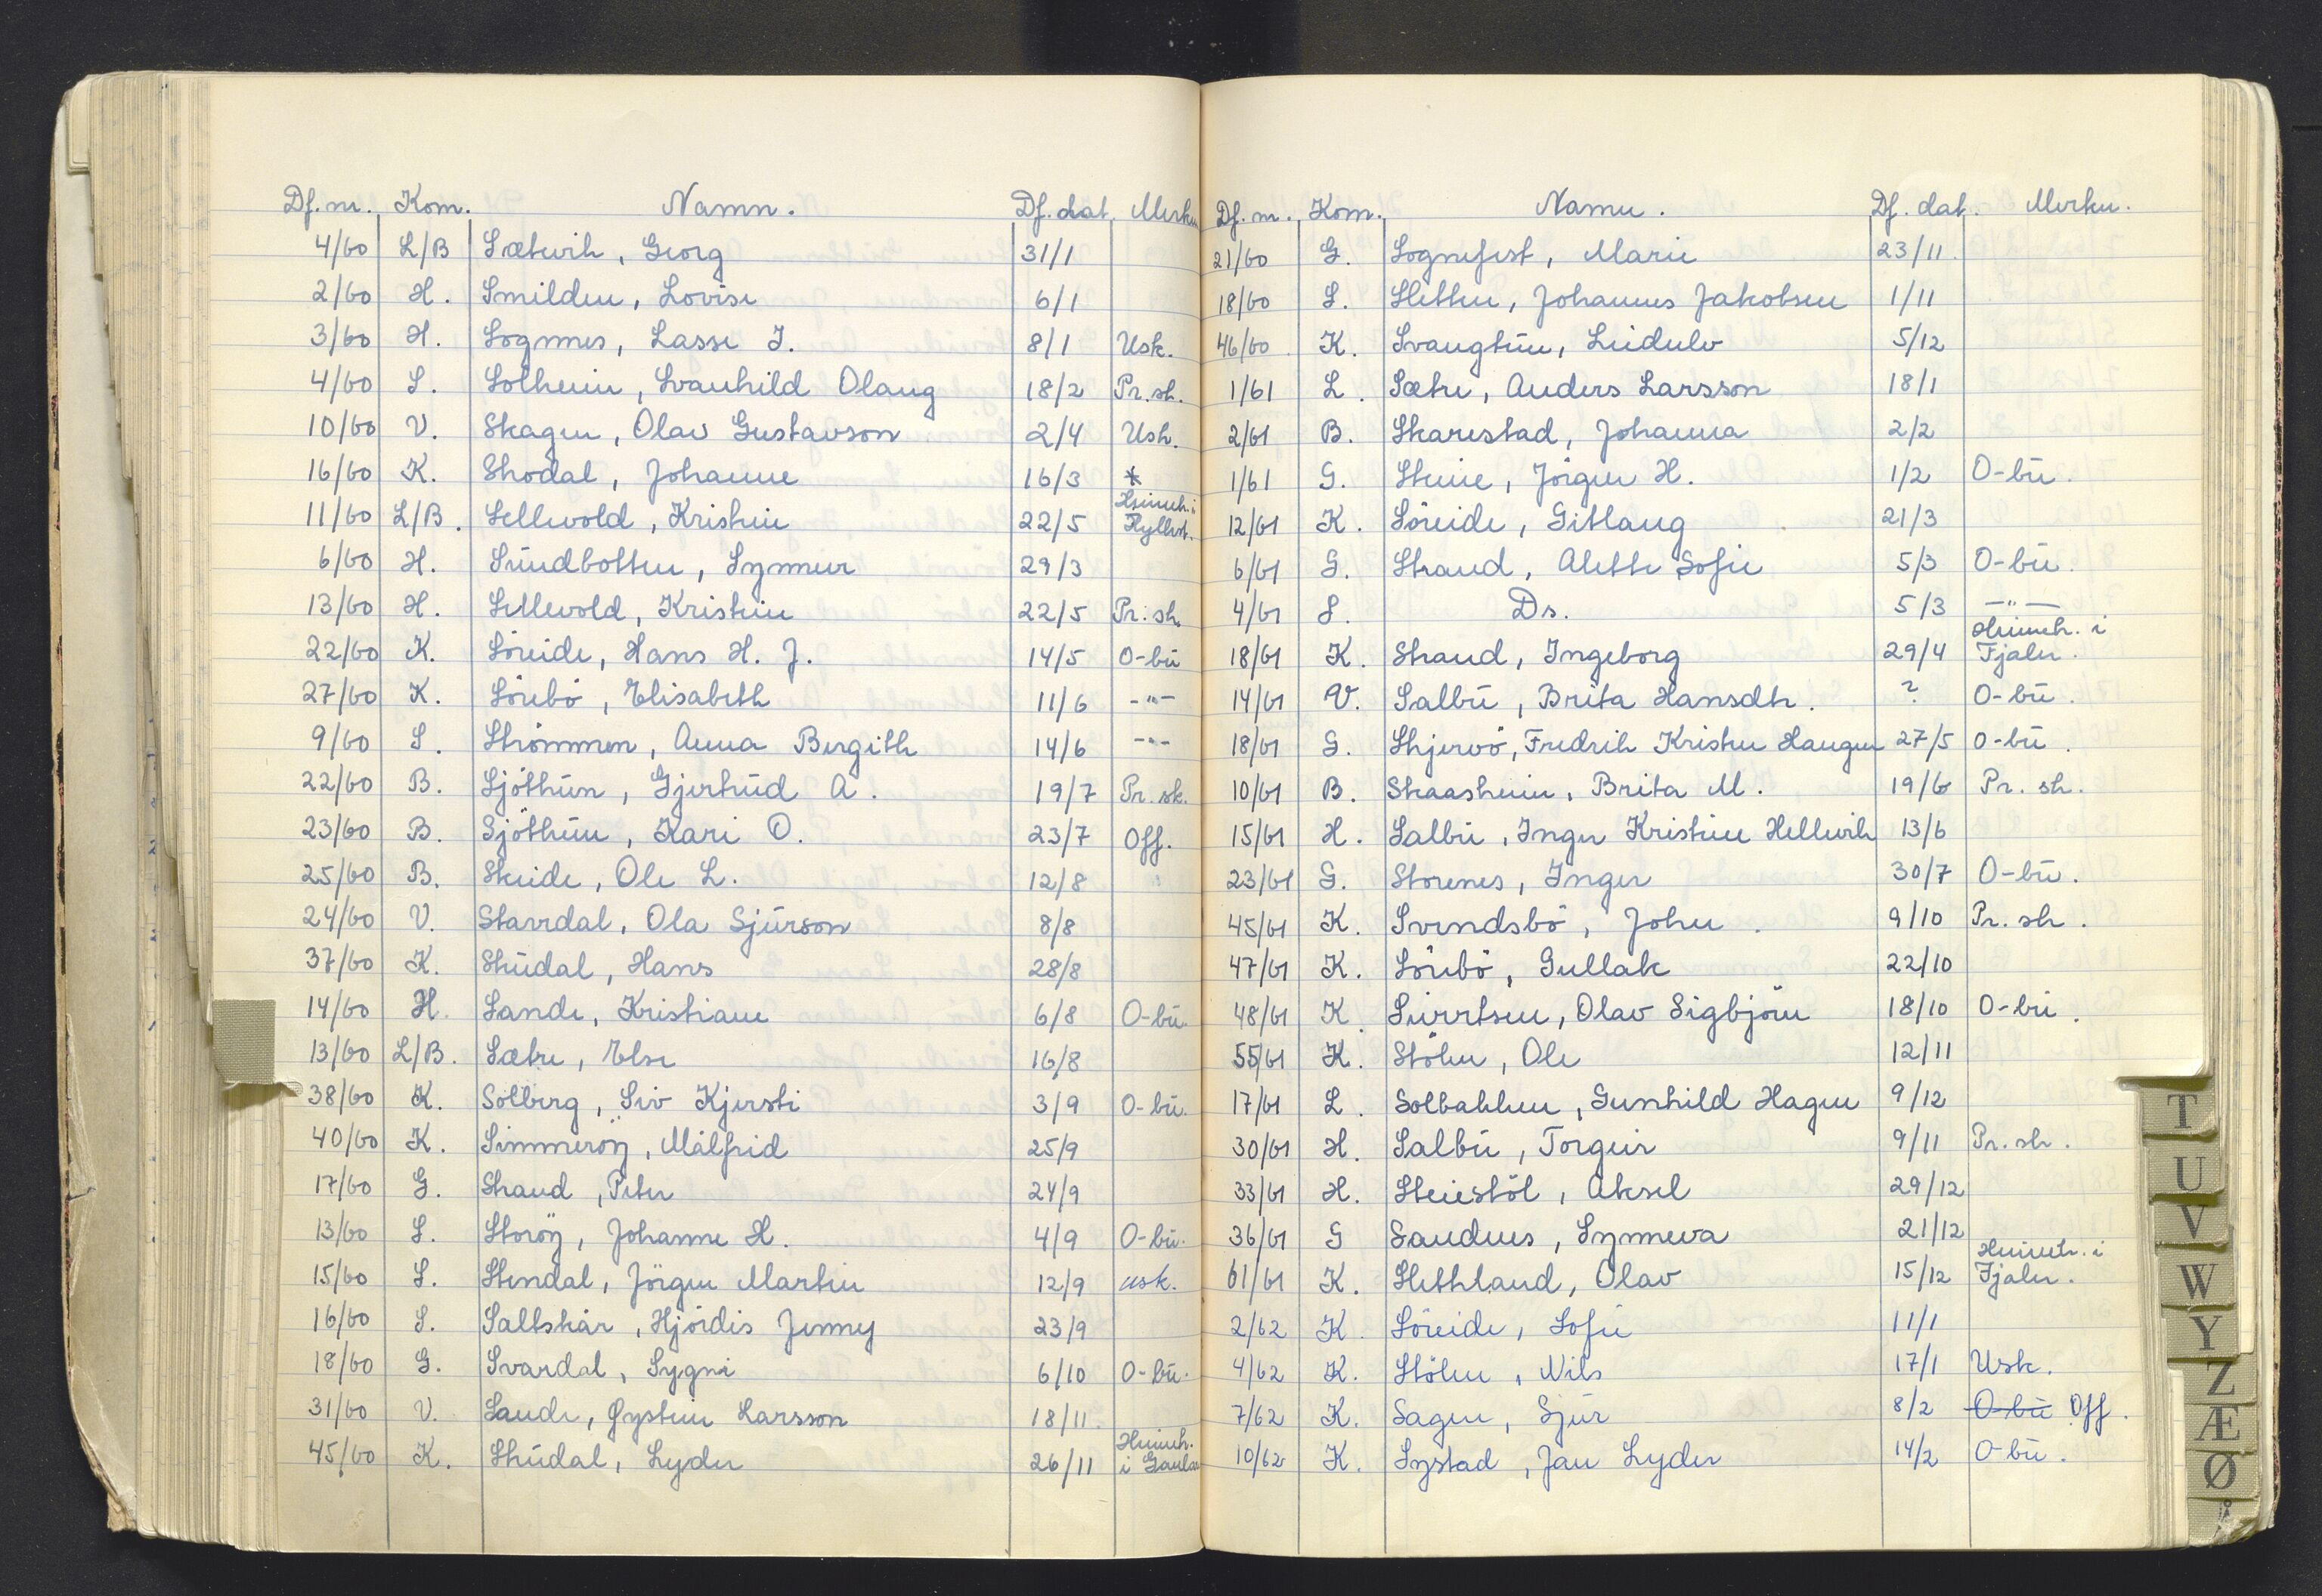 Df. nr. Kom. Namn. Df. dat. Merkn
4/60 L/B Sætevik, Georg 31/1
2/60 H. Smilden, Lovise 6/1
3/60 H. Sognnes, Lasse J. 8/1 Usk.
4/60 S. Solheim, Svanhild Olaug 18/2 Pr. sk.
10/60 V. Skagen, Olav Gustavson 2/4 Usk.
16/60 K. Skodal, Johanne 16/3 *
11/60 L/B. Sellevold, Kristine 22/5 Heimeh. i Hyllest.
6/60 H. Sundbotten, Synneve 29/3
13/60 H. Sellevold, Kristine 22/5 Pr. sk.
22/60 K. Söreide, Hans H. J. 14/5 O-bu
27/60 K. Sörebö, Elisabeth 11/6 -"-
9/60 S. Strömmen, Anna Bergith 14/6 -"-
22/60 B. Sjöthun, Gjertrud A. 19/7 Pr. sk.
23/60 B. Sjöthun, Kari O. 23/7 Off.
25/60 B. Skeide, Ole L. 12/8
24/60 V. Stavdal, Ola Sjurson 8/8
37/60 K. Studal, Hans 28/8
14/60 H. Sande, Kristiane 6/8 O-bu.
13/60 L/B. Sætre, Else 16/8
38/60 K. Solberg, Siv Kjersti 3/9 O-bu.
40/60 K. Simmeröy, Målfrid 25/9
17/60 G. Strand, Peter 24/9
13/60 S. Storöy, Johanne H. 4/9 O-bu.
15/60 S. Stendal, Jörgen Martin 12/9 usk.
16/60 S. Saltskår, Hjördis Jenny 23/9
18/60 G. Svardal, Sygni 6/10 O-bu.
31/60 V. Sande, Øystein Larsson 18/11.
45/60 K. Studal, Lyder 26/11 Heimeh. i Gaular
Df. nr. Kom. Namn. Df. dat. Merkn.
21/60 G. Sognefest, Marie 23/11.
18/60 S. Sletten, Johannes Jakobsen 1/11
46/60 K. Svangtun, Leidulv 5/12
1/61 L. Sætre, Anders Larsson 18/1
2/61 B. Skarestad, Johanna 2/2
1/61 G. Steine, Jörgen H. 1/2 O-bu.
12/61 K. Söreide, Gitlaug 21/3
6/61 G. Strand, Alette Sofie 5/3 O-bu.
4/61 S. Ds. 5/3 -"-
18/61 K. Strand, Ingeborg 29/4 Heimeh. i Fjaler.
14/61 V. Salbu, Brita Hansdtr. ? O-bu.
18/61 G. Skjervö, Fredrik Kristen Haugen 27/5 O-bu.
10/61 B. Skaasheim, Brita M. 19/6 Pr. sk.
15/61 H. Salbu, Inger Kristine Hellevik 13/6
23/61 G. Storenes, Inger 30/7 O-bu.
45/61 K. Svendsbö, John. 9/10 Pr. sk.
47/61 K. Sörebö, Gullak 22/10
48/61 K. Sivertsen, Olav Sigbjörn 18/10 O-bu.
55/61 K. Stölen, Ole 12/11
17/61 L. Solbakken, Gunhild Hagen 9/12
30/61 H. Salbu, Torgeir 9/11 Pr. sk.
33/61 H. Steiestöl, Aksel 29/12
36/61 G Sandnes, Synneva 21/12
61/61 K. Slettland, Olav 15/12 Heimeh. i Fjaler.
2/62 K. Söreide, Sofie 11/1
4/62 K. Stölen, Nils 17/1 Usk.
7/62 K. Sagen, Sjur 8/2 O-bu Off.
10/62 K. Systad, Jan Lyder 14/2 O-bu.
T
U
V
W
Y
Z
Æ
Ø
Å